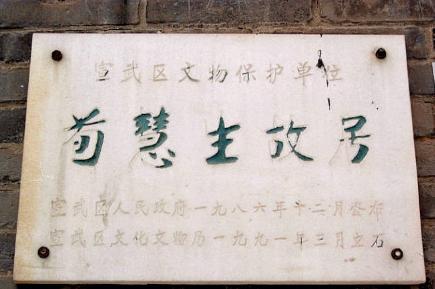 宣武区文物保护单位
荀慧生故居
宣武区人民政府一九八六年十二月公布
宣武区文化文物局一九九一年三月立石